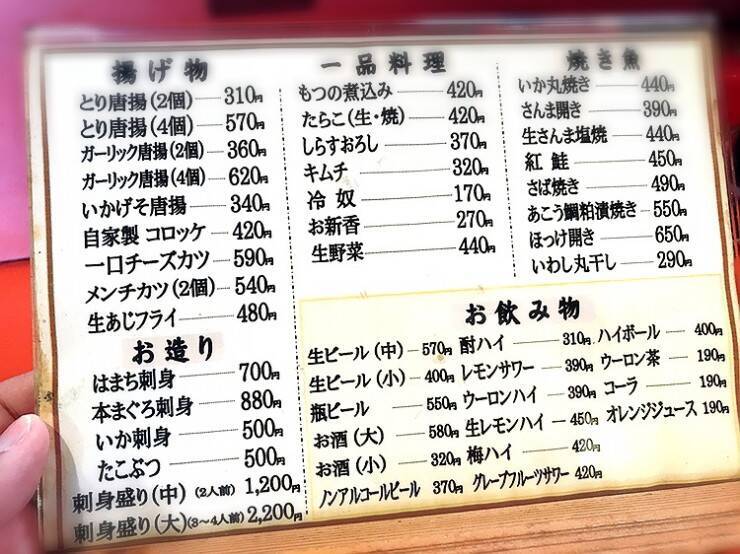 揚げ物
とり唐揚(2個) 310円
とり唐揚(4個) 570円
ガーリック唐揚(2個) 360円
ガーリック唐揚(4個) 620円
いかげそ唐揚 340円
自家製 コロッケ 420円
一口チーズカツ 590円
メンチカツ(2個) 540円
生あじフライ 480円
お造り
はまち刺身 700円
本まぐろ刺身 880円
いか刺身 500円
たこぶつ 500円
刺身盛り(中)(2人前) 1,200円
刺身盛り(大)(3〜4人前) 2,200円
一品料理
もつの煮込み 420円
たらこ(生・焼) 420円
しらすおろし 370円
キムチ 320円
冷奴 170円
お新香 270円
生野菜 440円
焼き魚
いか丸焼き 440円
さんま開き 390円
生さんま塩焼 440円
紅鮭 450円
さば焼き 490円
あこう鯛粕漬焼き 550円
ほっけ開き 650円
いわし丸干し 290円
お飲み物
生ビール(中) 570円
生ビール(小) 400円
瓶ビール 550円
お酒(大) 580円
お酒(小) 320円
ノンアルコールビール 370円
酎ハイ 310円
レモンサワー 390円
ウーロンハイ 390円
生レモンハイ 450円
梅ハイ 420円
グレープフルーツサワー 420円
ハイボール 400円
ウーロン茶 190円
コーラ 190円
オレンジジュース 190円